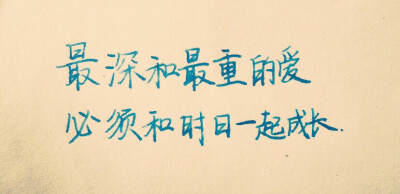 最深和最重的爱
必须和时日一起成长.